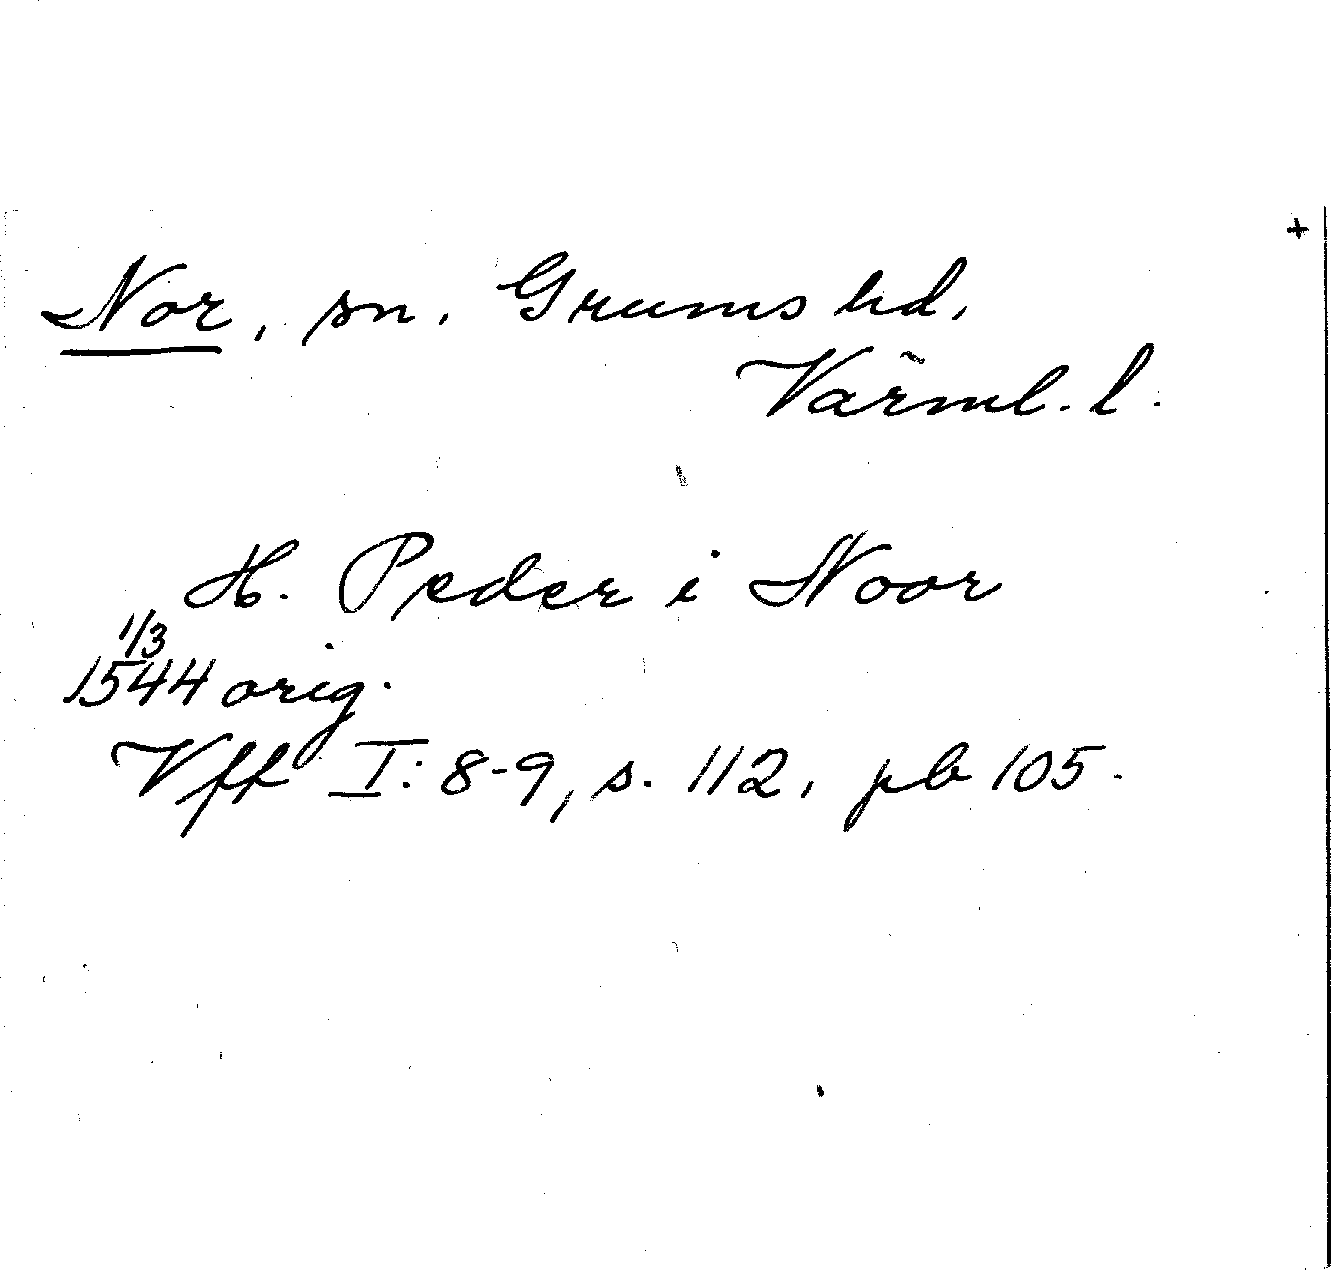 +
Nor, sn. Grums hd,
Värml. l.
H. Peder i Noor
1/3
1544 orig.
Vff I: 8-9, s. 112, pb 105.